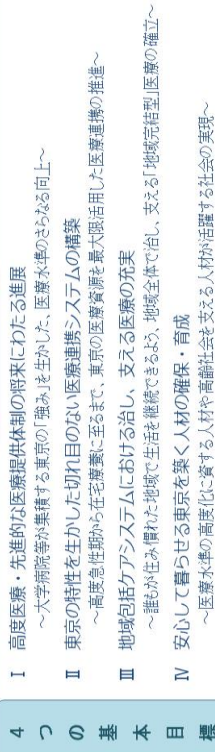 4つの基本目標
Ⅰ 高度医療・先進的な医療提供体制の将来にわたる進展
～大学病院等が集積する東京の「強み」を生かした、医療水準のさらなる向上～
Ⅱ 東京の特性を生かした切れ目のない医療連携システムの構築
～高度急性期から在宅療養に至るまで、東京の医療資源を最大限活用した医療連携の推進～
Ⅲ 地域包括ケアシステムにおける治し、支える医療の充実
～誰もが住み慣れた地域で生活を継続できるよう、地域全体で治し、支える「地域完結型」医療の確立～
Ⅳ 安心して暮らせる東京を築く人材の確保・育成
～医療水準の高度化に資する人材や高齢社会を支える人材が活躍する社会の実現～